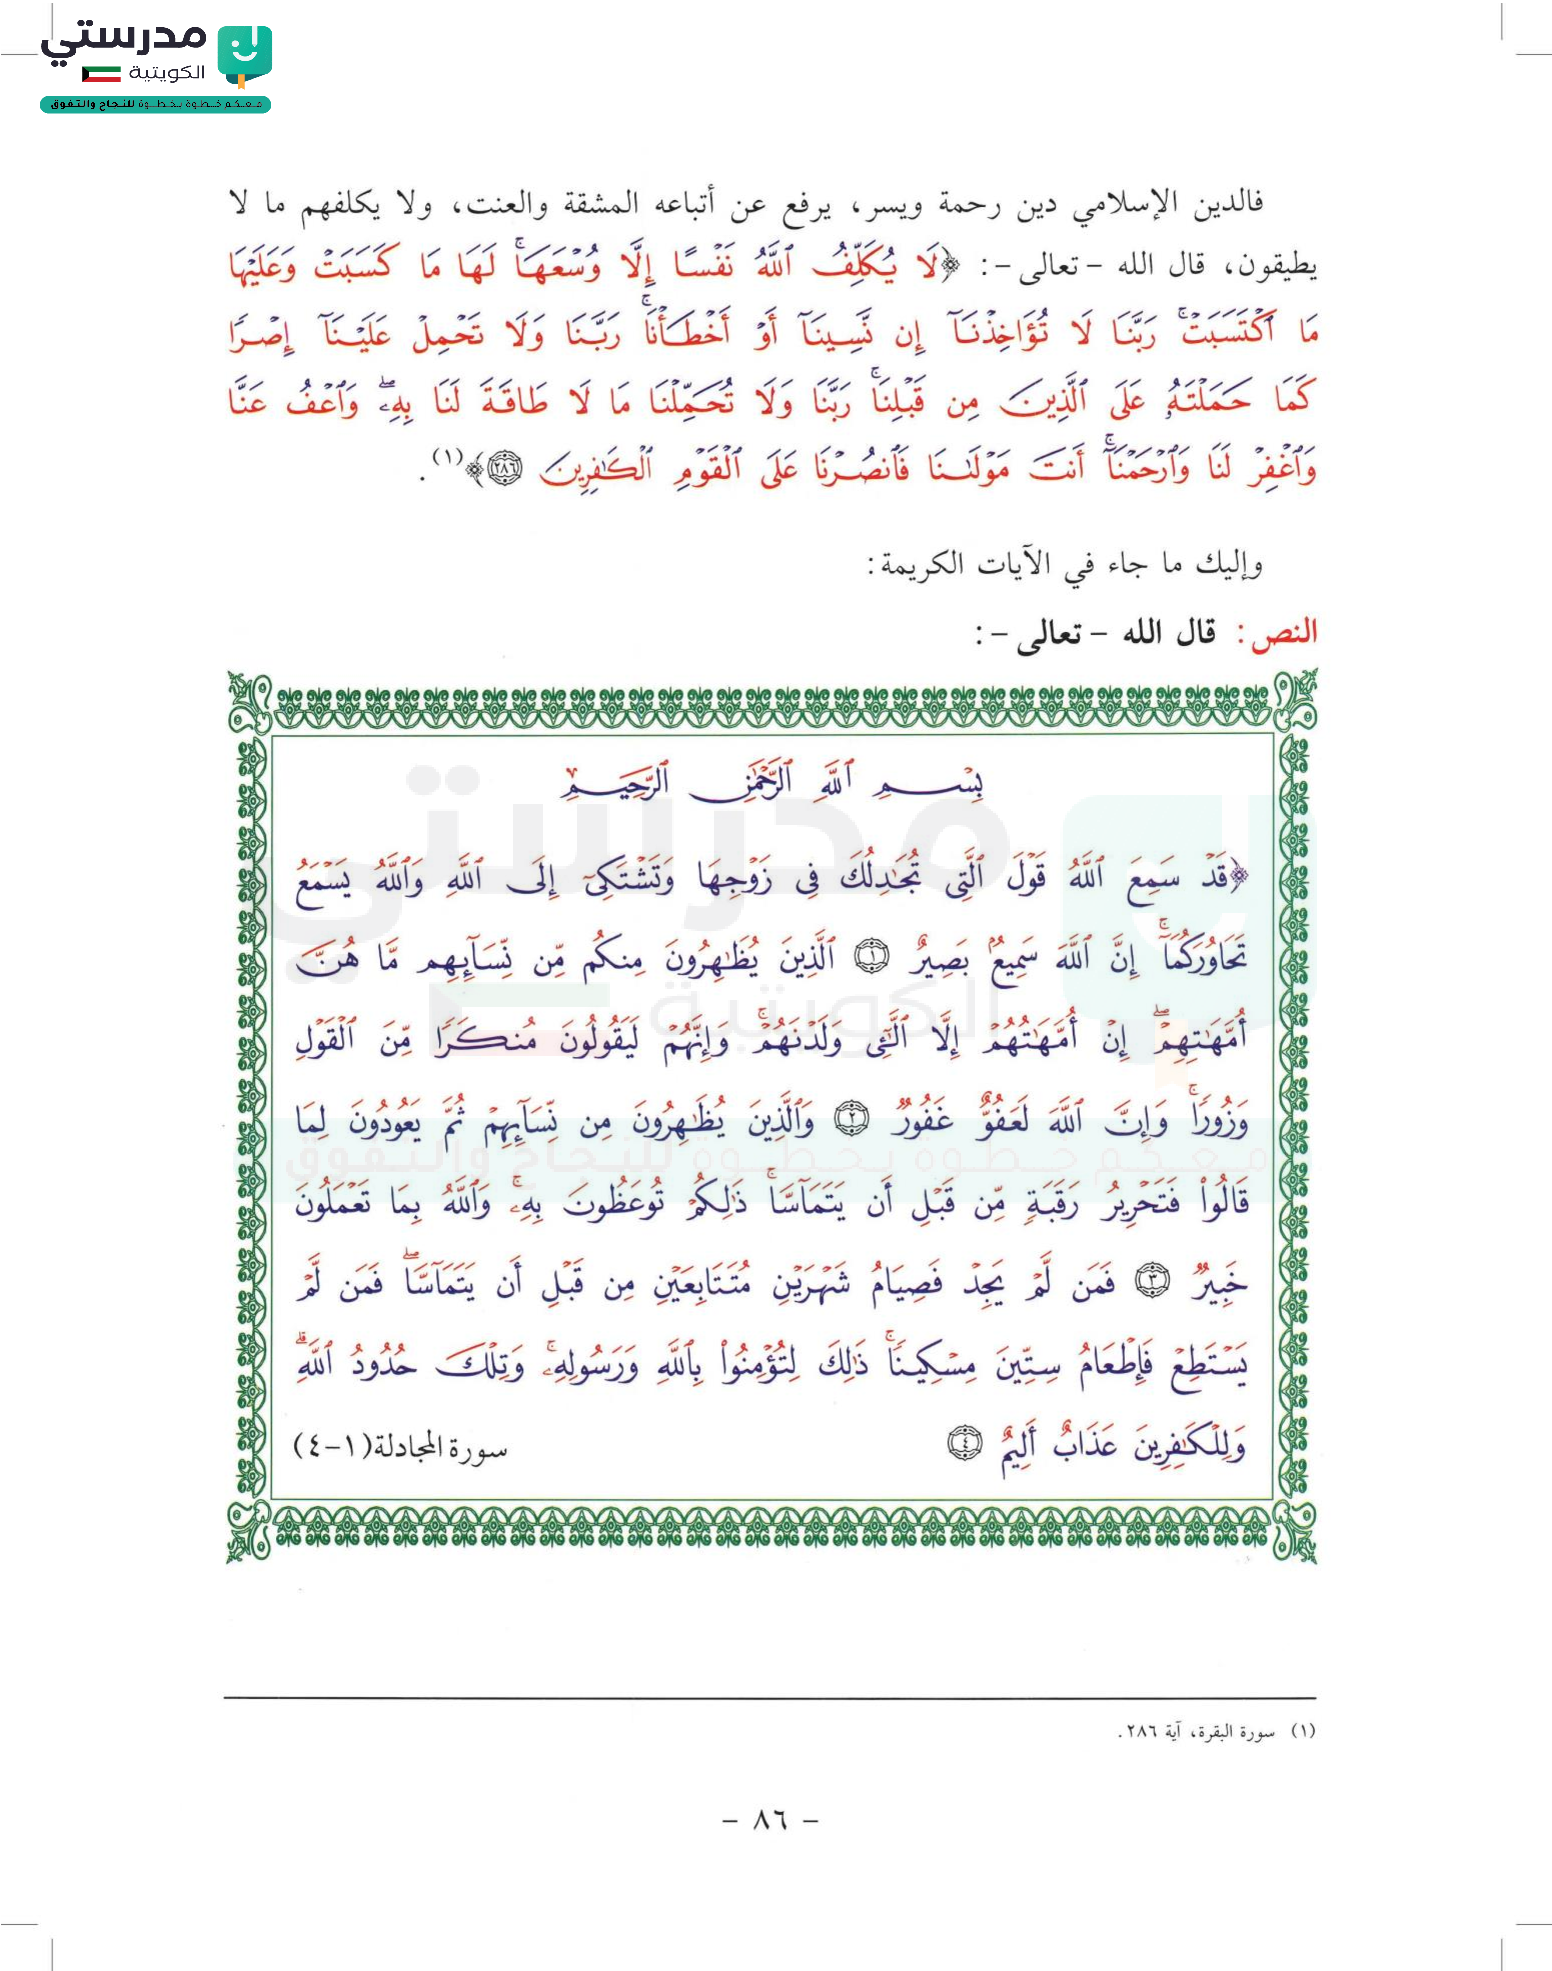 مدرستي
الكويتية
معكم خطوة بخطوة للنجاح والتفوق
فالدين الإسلامي دين رحمة ويسر، يرفع عن أتباعه المشقة والعنت، ولا يكلفهم ما لا
يطيقون، قال الله - تعالى -: ﴿لَا يُكَلِّفُ ٱللَّهُ نَفْسًا إِلَّا وُسْعَهَاۚ لَهَا مَا كَسَبَتْ وَعَلَيْهَا
مَا ٱكْتَسَبَتْۗ رَبَّنَا لَا تُؤَاخِذْنَآ إِن نَّسِينَآ أَوْ أَخْطَأْنَاۚ رَبَّنَا وَلَا تَحْمِلْ عَلَيْنَآ إِصْرًا
كَمَا حَمَلْتَهُۥ عَلَى ٱلَّذِينَ مِن قَبْلِنَاۚ رَبَّنَا وَلَا تُحَمِّلْنَا مَا لَا طَاقَةَ لَنَا بِهِۦۖ وَٱعْفُ عَنَّا
وَٱغْفِرْ لَنَا وَٱرْحَمْنَآۚ أَنتَ مَوْلَىٰنَا فَٱنصُرْنَا عَلَى ٱلْقَوْمِ ٱلْكَٰفِرِينَ ٢٨٦﴾(١).
وإليك ما جاء في الآيات الكريمة:
النص: قال الله - تعالى -:
بِسْمِ ٱللَّهِ ٱلرَّحْمَٰنِ ٱلرَّحِيمِ
﴿قَدْ سَمِعَ ٱللَّهُ قَوْلَ ٱلَّتِى تُجَٰدِلُكَ فِى زَوْجِهَا وَتَشْتَكِىٓ إِلَى ٱللَّهِ وَٱللَّهُ يَسْمَعُ
تَحَاوُرَكُمَآۚ إِنَّ ٱللَّهَ سَمِيعٌۢ بَصِيرٌ ١ ٱلَّذِينَ يُظَٰهِرُونَ مِنكُم مِّن نِّسَآئِهِم مَّا هُنَّ
أُمَّهَٰتِهِمْۖ إِنْ أُمَّهَٰتُهُمْ إِلَّا ٱلَّٰٓـِٔى وَلَدْنَهُمْۚ وَإِنَّهُمْ لَيَقُولُونَ مُنكَرًا مِّنَ ٱلْقَوْلِ
وَزُورًاۚ وَإِنَّ ٱللَّهَ لَعَفُوٌّ غَفُورٌ ٢ وَٱلَّذِينَ يُظَٰهِرُونَ مِن نِّسَآئِهِمْ ثُمَّ يَعُودُونَ لِمَا
قَالُوا۟ فَتَحْرِيرُ رَقَبَةٍ مِّن قَبْلِ أَن يَتَمَآسَّاۚ ذَٰلِكُمْ تُوعَظُونَ بِهِۦۚ وَٱللَّهُ بِمَا تَعْمَلُونَ
خَبِيرٌ ٣ فَمَن لَّمْ يَجِدْ فَصِيَامُ شَهْرَيْنِ مُتَتَابِعَيْنِ مِن قَبْلِ أَن يَتَمَآسَّاۖ فَمَن لَّمْ
يَسْتَطِعْ فَإِطْعَامُ سِتِّينَ مِسْكِينًاۚ ذَٰلِكَ لِتُؤْمِنُوا۟ بِٱللَّهِ وَرَسُولِهِۦۚ وَتِلْكَ حُدُودُ ٱللَّهِۗ
وَلِلْكَٰفِرِينَ عَذَابٌ أَلِيمٌ ٤ سورة المجادلة(١-٤)
(١) سورة البقرة، آية ٢٨٦.
- ٨٦ -